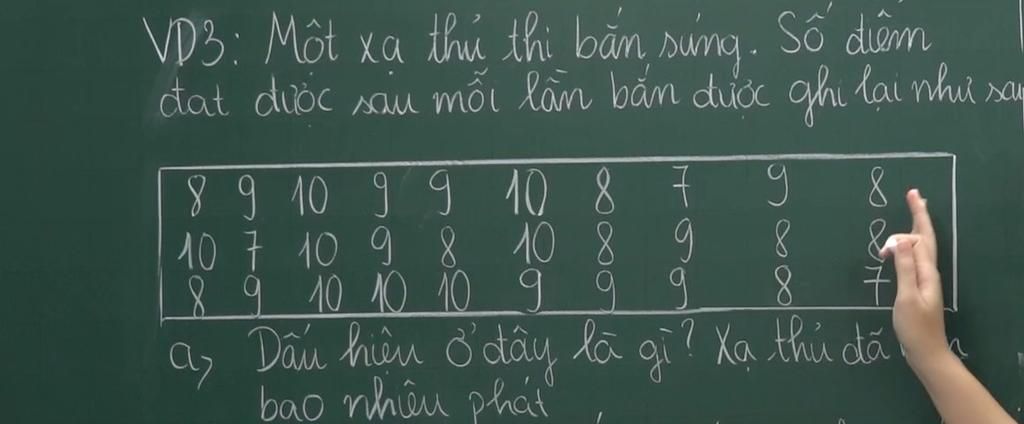 VD3: Một xạ thủ thi bắn súng. Số điểm
đạt được sau mỗi lần bắn được ghi lại như sau
8 9 10 9 9 10 8 7 9 8
10 7 10 9 8 10 8 9 8 8
8 9 10 10 10 9 9 9 8 7
a, Dấu hiệu ở đây là gì? Xạ thủ đã
bao nhiêu phát